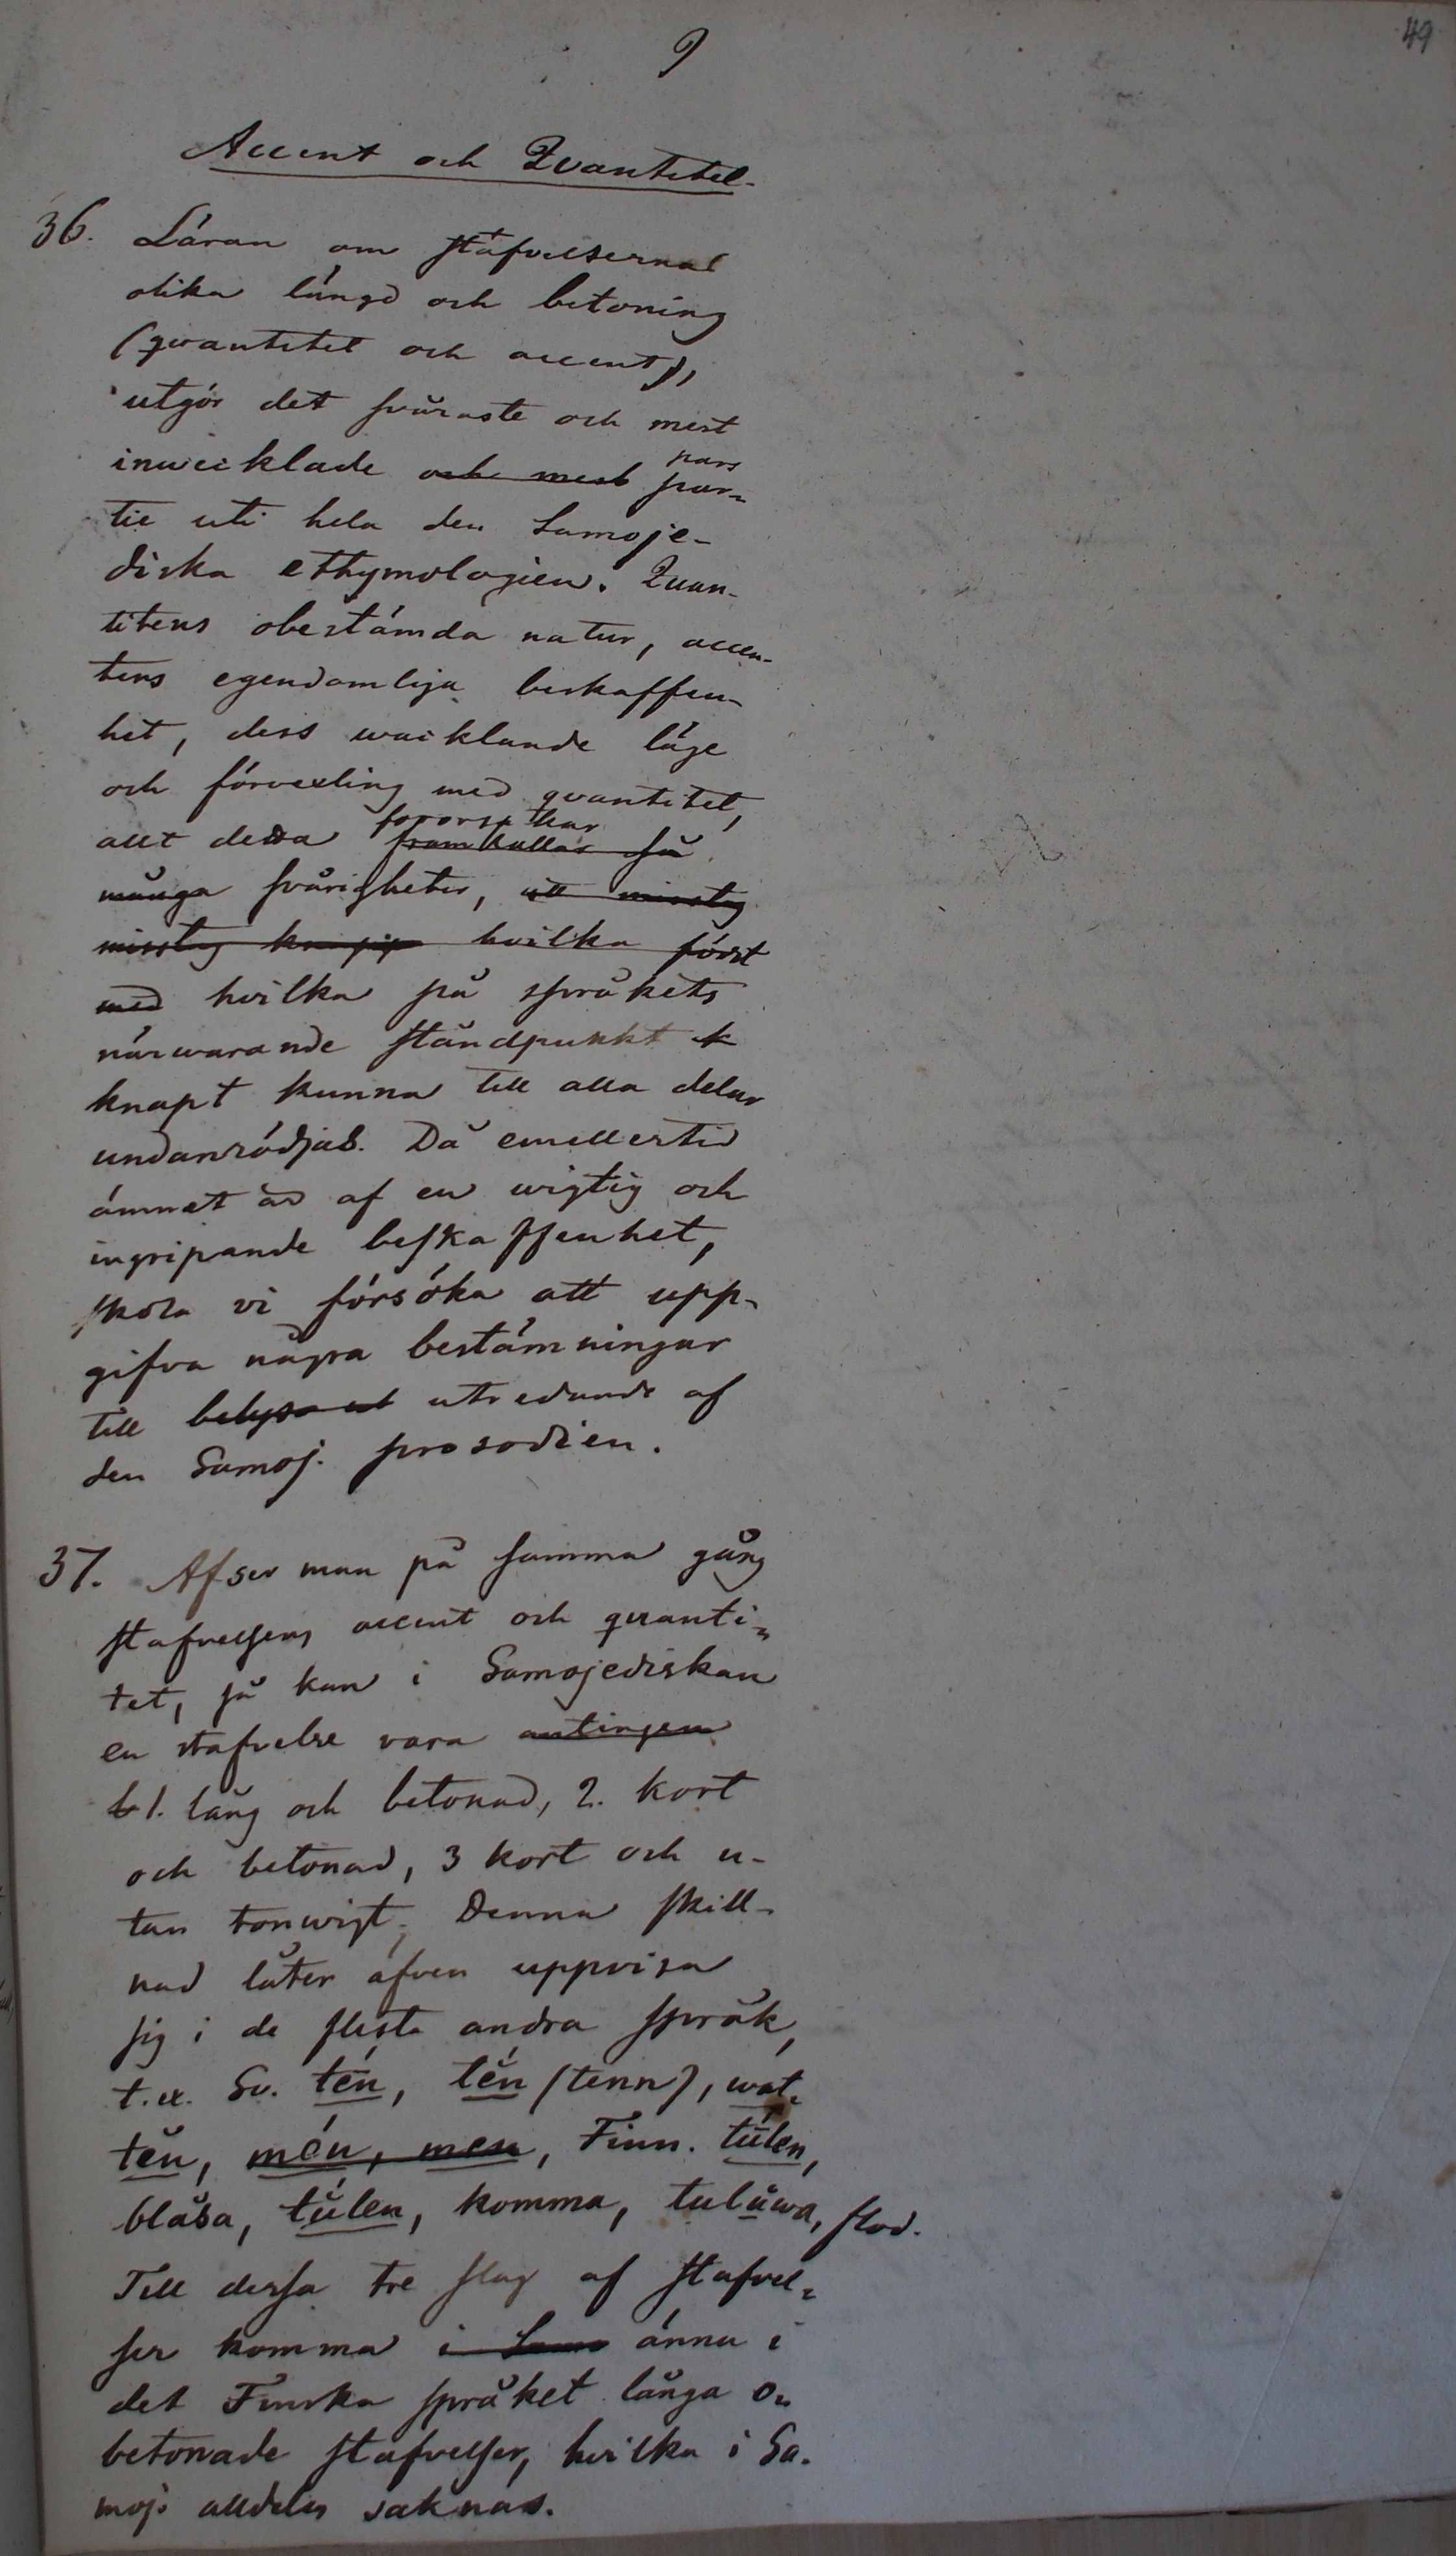 49
9
Accent och Qvantitet.
36. Läran om stafvelsernas
olika längd och betoning
(qvantitet och accent),
utgör det svåraste och mest
inveicklade och mest par-
tie uti hela den Samoje-
diska ethymologien. Quan-
titens obestämda natur, accen-
tens egendomliga beskaffen-
het, dess vacklande läge
och förvexling med qvantitet,
allt detta förorsakar
framkallar så
många svårigheter, att misstag
misstag knapp hvilka först
med hvilka på språkets
närwarande ståndpunkt k
knapt kunna till alla delar
undanrödjas. Då emellertid
ämnet är af en wigtig och
ingripande beskaffenhet,
skola vi försöka att upp-
gifva några bestämningar
till belysa ut utredande af
den Samoj. prosodien.
37. Afser man på samma gång
stafvelsens accent och qvanti-
tet, så kan i Samojediskan
en stafvelse vara antingen
b 1. lång och betonad, 2. kort
och betonad, 3 kort och u-
tan tonwigt. Denna skill-
nad låter äfven uppvisa
sig i de flesta andra språk,
t.ex. Sv. tén, tén (tenn), wat-
tĕn, mén, men, Finn. túlen,
blåsa, túlen, komma, tulúwa, flod.
Till dessa tre slag af stafvel-
ser komma i Samo ännu i
det Finska språket långa o-
betonade stafvelser, hvilka i Sa-
moj. alldeles saknas.